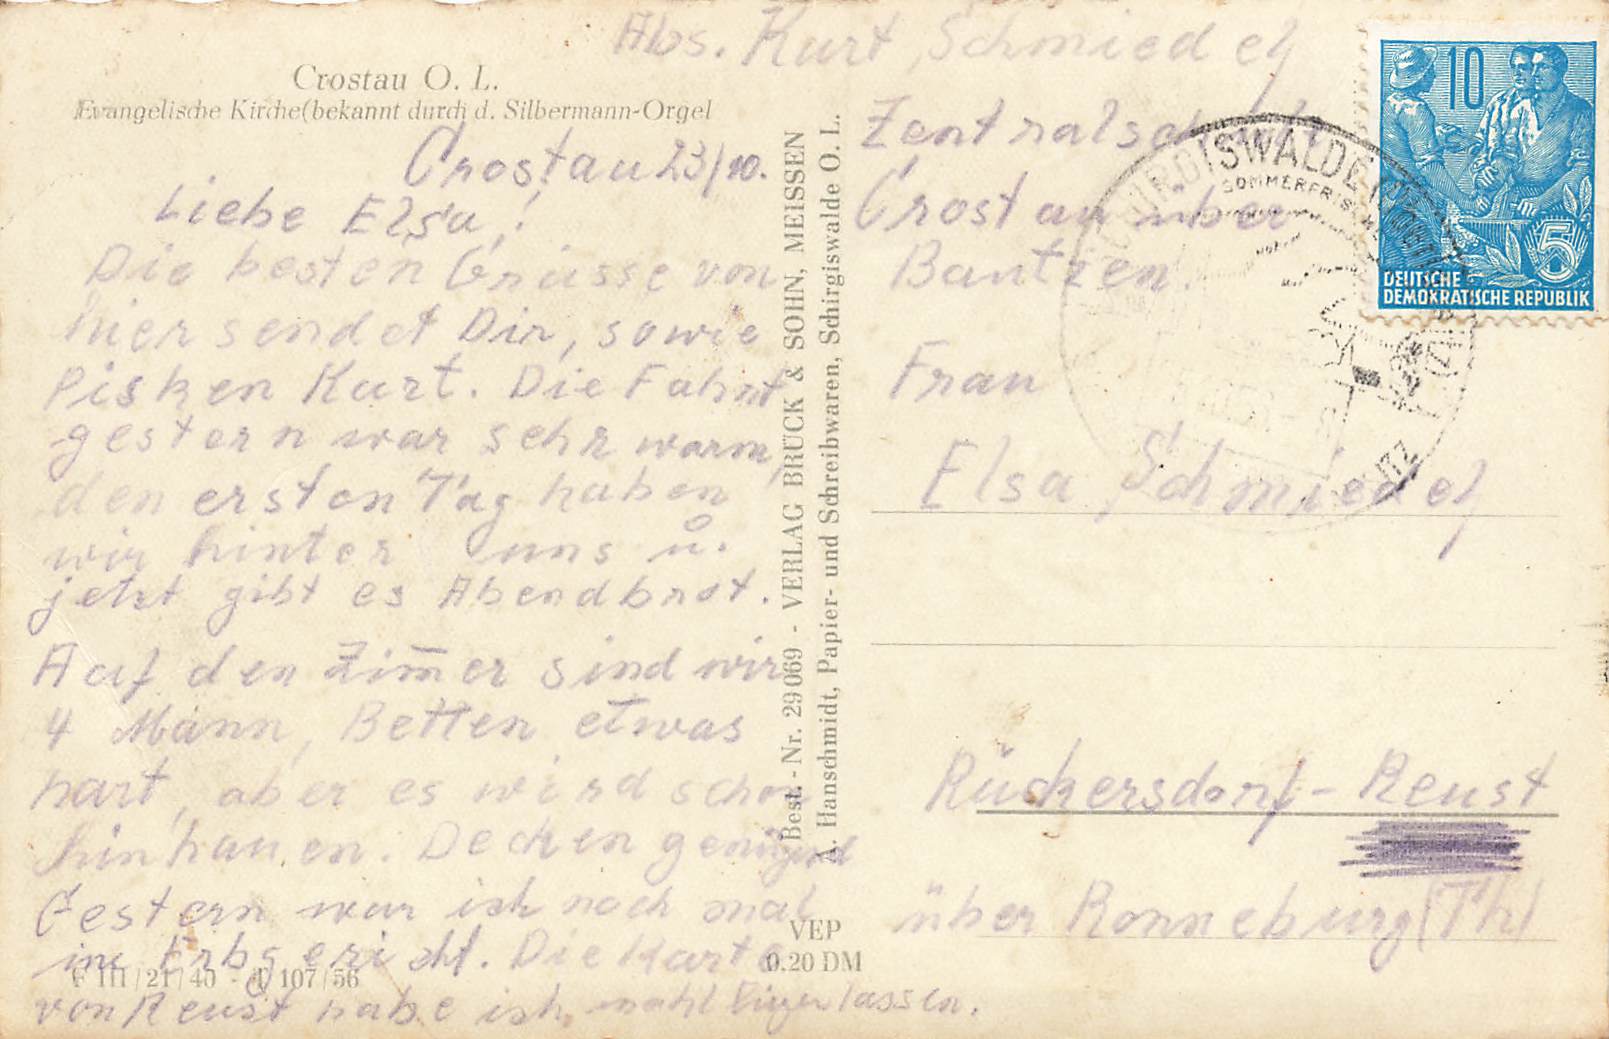 Crostau O. L.
Evangelische Kirche (bekannt durch d. Silbermann-Orgel
Crostau 23/10.
Liebe Elsa!
Die besten Grüsse von
hier sendet Dir, sowie
Kurt. Die Fahrt
gestern war sehr warm,
den ersten Tag haben
wir hinter uns u.
jetzt gibt es Abendbrot.
Auf den Zim̅er sind wir
4 Mann, Betten etwas
hart, aber es wird schon
hinhauen. Decken genügend
Gestern war ich noch mal
im Erbgericht. Die Karte
von Reust habe ich lassen.
F III/21/40 - A 107/56
VEP
0.20 DM
Best.-Nr. 29 069 - VERLAG BRÜCK & SOHN, MEISSEN
A. Hanschmidt, Papier- und Schreibwaren, Schirgiswalde O. L.
Abs. Kurt Schmiedel
Zentralschule
Crostau über
Bautzen.
Frau
Elsa Schmiedel
Rückersdorf-Reust
über Ronneburg (Th)
10
5
DEUTSCHE
DEMOKRATISCHE REPUBLIK
SCHIRGISWALDE
SOMMERFRISCHE